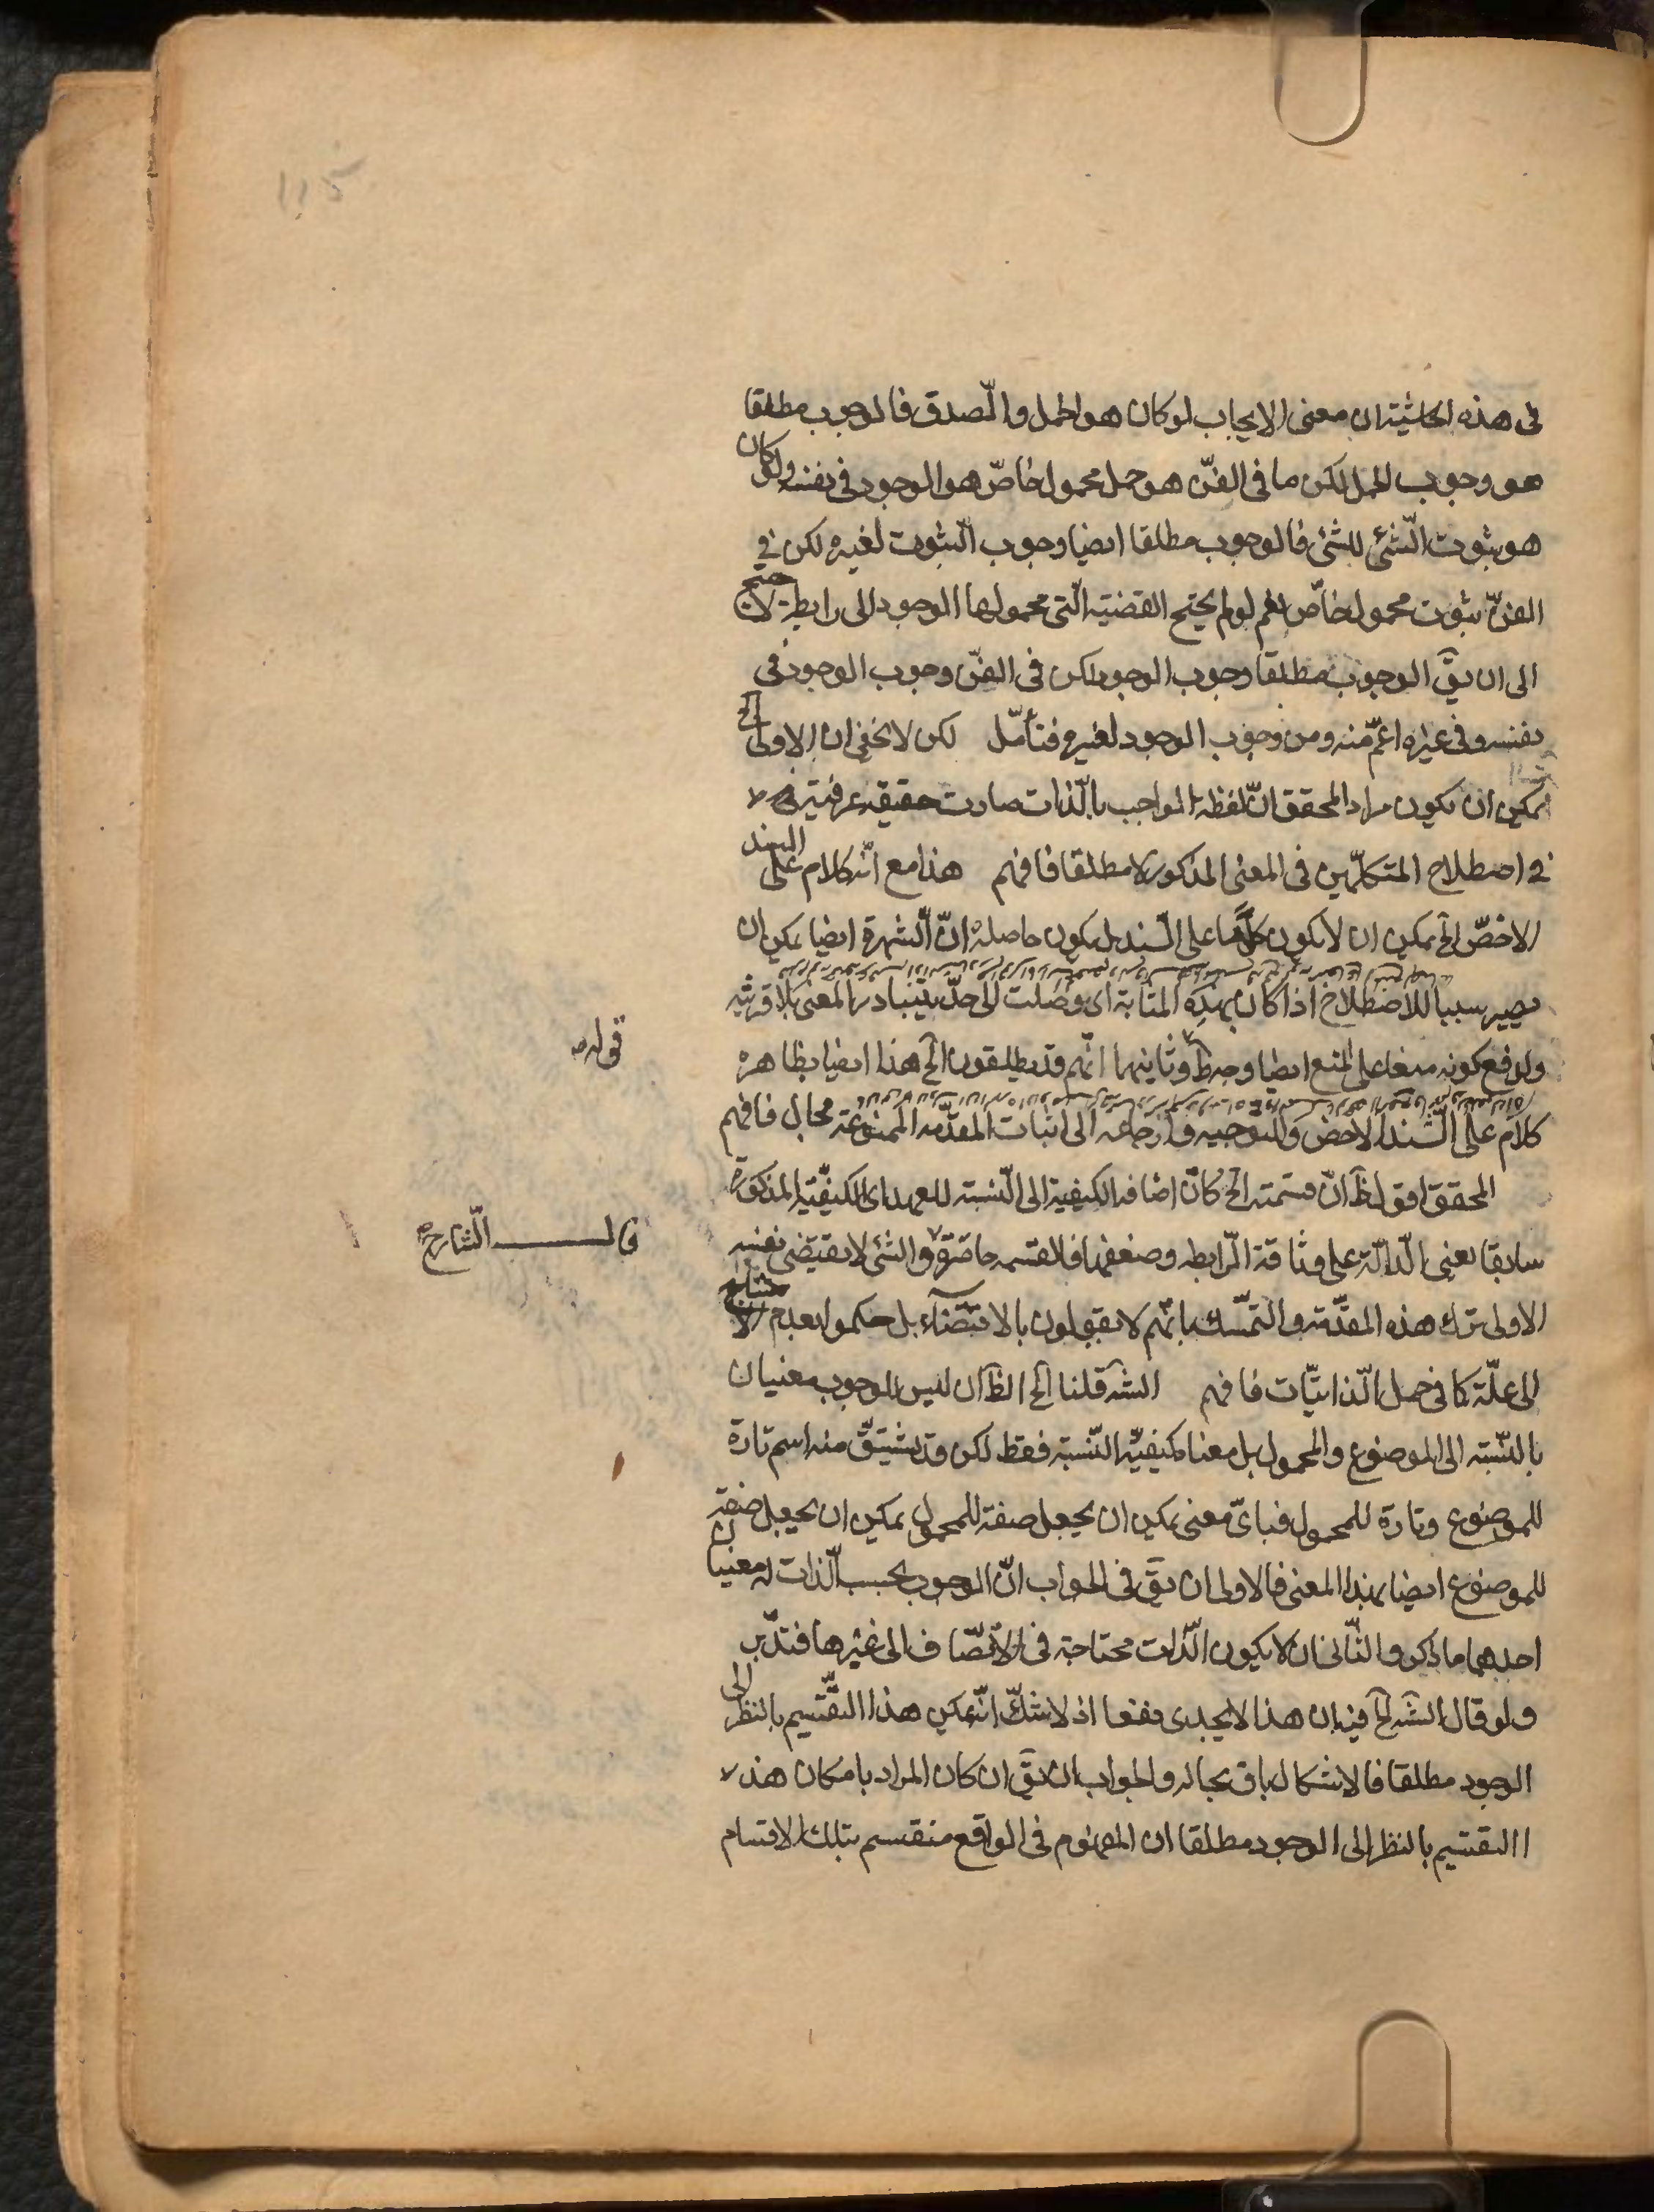 115
فى هذه الحاشية ان معنى الايجاب لو كان هو الحمل والصدق فالوجوب مطلقا
هو وجوب الحمل لكن ما فى الفنّ هو حمل محمول خاصّ هو الوجود فى نفسه ولو كان
هو ثبوت الشئ للشئ فالوجوب مطلقا ايضا وجوب الثبوت لغيره لكن فى
الفنّ ثبوت محمول خاصّ نعم لو لم يحتج القضية الّتى محمولها الوجود الى رابطة
الى ان يقَ الوجوب مطلقا وجوب الوجود لكن فى الفنّ وجوب الوجود فى
نفسه وفى غيره اعمّ منه ومن وجوب الوجود لغيره فتأمّل لكن لا يخفى ان الاولى الخ
يمكن ان يكون مراد المحقق انّ لفظه الواجب بالذات صارت حقيقة عرفية
فى اصطلاح المتكلّمين فى المعنى المذكور لا مطلقا فافهم هذا مع انّه كلام على السند
الاخصّ الخ يمكن ان لا يكون كلاما على السند بل يكون حاصله انّ الشهرة ايضا يمكن ان
يصير سببا للاصطلاح اذا كان بهذه المثابة اى وصلت الى حدّ يتبادر المعنى بلا قرينة
ولدفع كونه منعا على المنع ايضا وجه ظ وثانيهما انّهم قد يطلقون الخ هذا ايضا بظاهره
قوله
كلام على السند الاخص والتوجيه وارجاعه الى اثبات المقدّمة الممنوعة محال فافهم
المحقق اقول ظَ انّ قسمته الخ كانّ اضافة الكيفية الى النسبة للعهد اى الكيفيّة المذكورة
قال الشارح
سابقا يعنى الدالّة على وثاقة الرابطه وضعفها فالقسمه حاصرة والشئ لا يقتضى نفسه
الاولى ترك هذه المقدّمة والتمسّك بانّهم لا يقولون بالاقتضاء بل حكموا بعدم
الى علّة كما فى حمل الذاتيّات فافهم الشَ قلنا الخ الظَ ان ليس للوجوب معنيان
بالنسبة الى الموضوع والمحمول بل معناه كيفيّة النسبة فقط لكن قد يشتقّ منه اسم تارة
للموضوع وتارة للمحمول فباىّ معنى يمكن ان يجعل صفة للمحمول يمكن ان يجعل صفة
للموضوع ايضا بهذا المعنى فالاولى ان يقَ فى الجواب انّ الوجوب بحسب الذات له معنيان
احدهما ما ذكر والثانى ان لا يكون الذات محتاجة فى الاتصاف الى غيرها فتدبّر
ولو قال الشَ الخ فيه ان هذا لا يجدى نفعا اذ لا شكّ انّه يمكن هذا التقسيم بالنظر الى
الوجود مطلقا فالاشكال باق بحاله والجواب ان يقَ ان كان المراد بامكان هذا
التقسيم بالنظر الى الوجود مطلقا ان المفهوم فى الواقع منقسم بتلك الاقسام